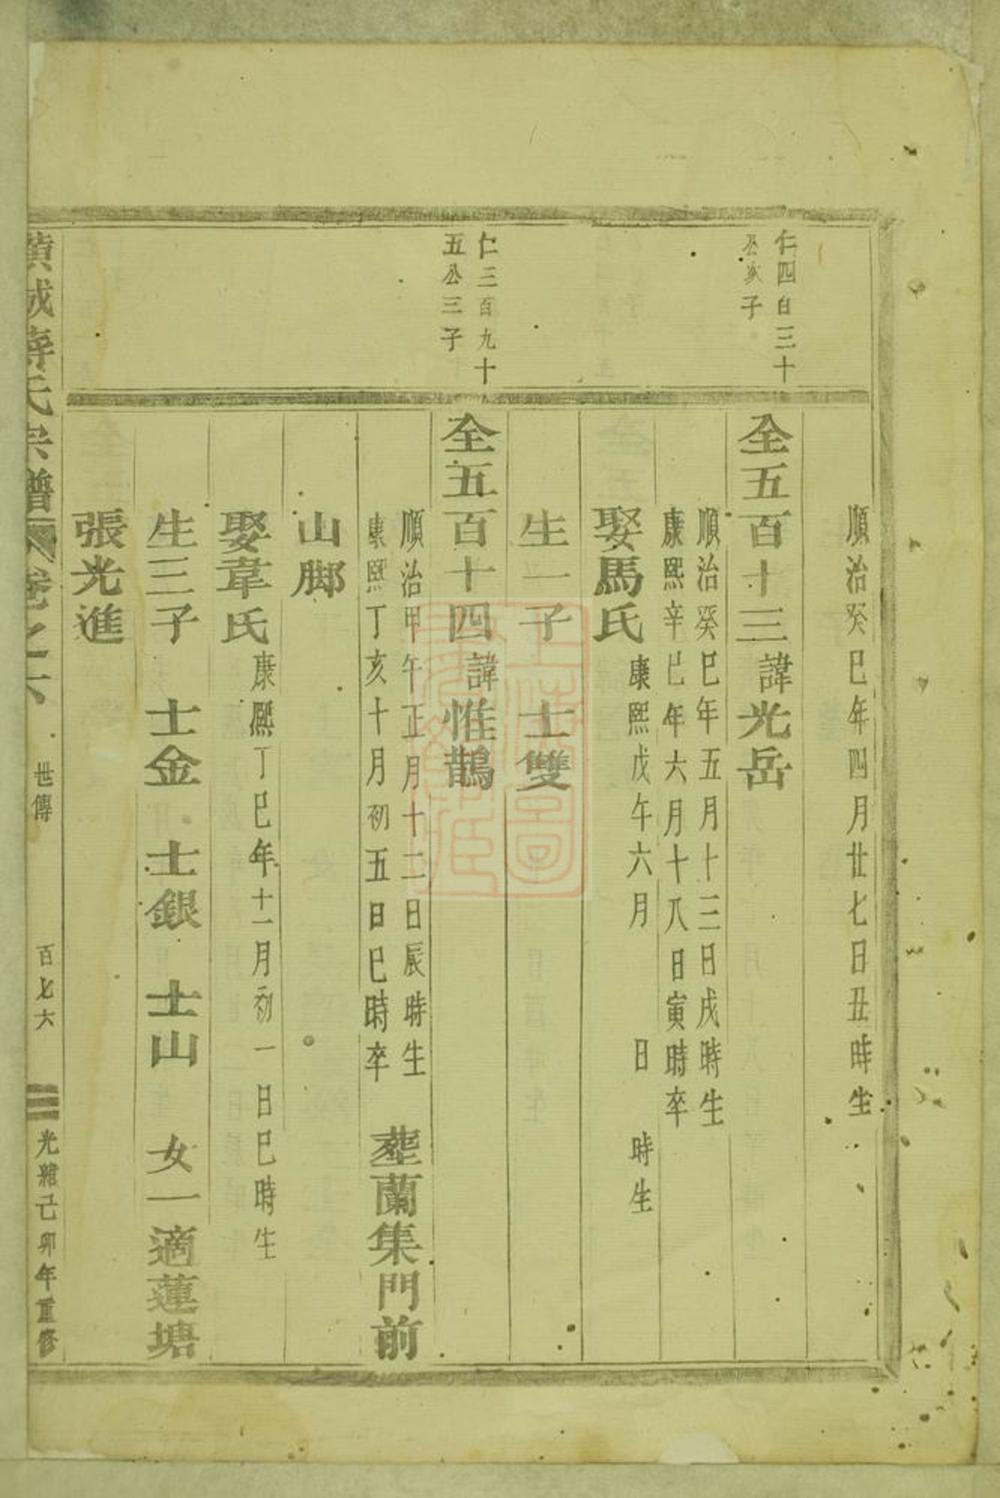 順治癸巳年四月廿七日丑時生
仁四百三十
子
全五百十三諱光岳
順治癸巳年五月十三日戌時生
康熙辛巳年六月十八日寅時卒
娶馬氏 康熙戊午六月 日 時生
生一子 士雙
仁三百九十
五公三子
全五百十四諱惟鵲
順治甲午正月十二日辰時生
康熙丁亥十月初五日巳時卒 葬蘭集門前
山脚
娶韋氏 康熙丁巳年十一月初一日巳時生
生三子 士金 士銀 士山 女一適蓮塘
張光進
氏宗譜 卷之六 世傳 百七六 光緒己卯年重修